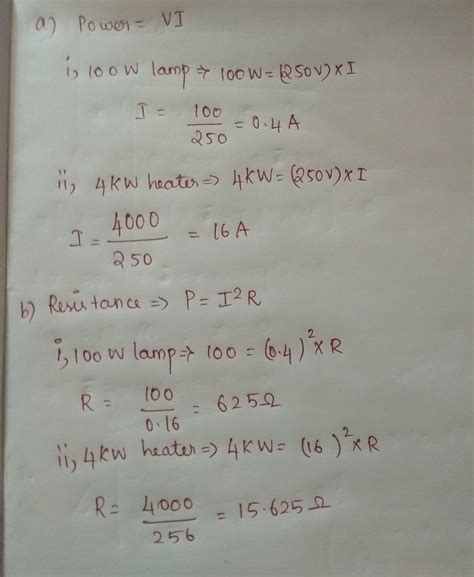 a) Power = VI
i, 100W lamp ⇒ 100W = (250V) × I
I = 100/250 = 0.4 A
ii, 4KW heater ⇒ 4KW = (250V) × I
I = 4000/250 = 16 A
b) Resistance ⇒ P = I²R
i, 100W lamp ⇒ 100 = (0.4)² × R
R = 100/0.16 = 625 Ω
ii, 4KW heater ⇒ 4KW = (16)² × R
R = 4000/256 = 15.625 Ω